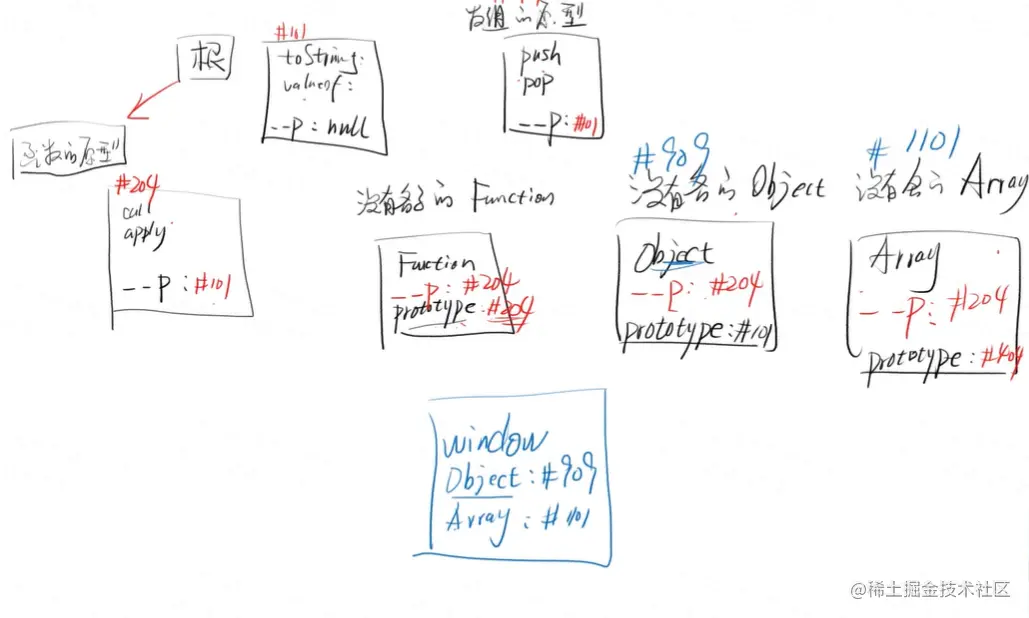 数组的原型
#101
根
toString:
valueof:
--p: null
push
pop
--p: #101
函数的原型
#204
call
apply
--p: #101
没有名字的 Function
Function
--p: #204
prototype: #204
#909
没有名的 Object
Object
--p: #204
prototype: #101
#1101
没有名的 Array
Array
--p: #204
prototype: #404
window
Object: #909
Array: #1101
@稀土掘金技术社区